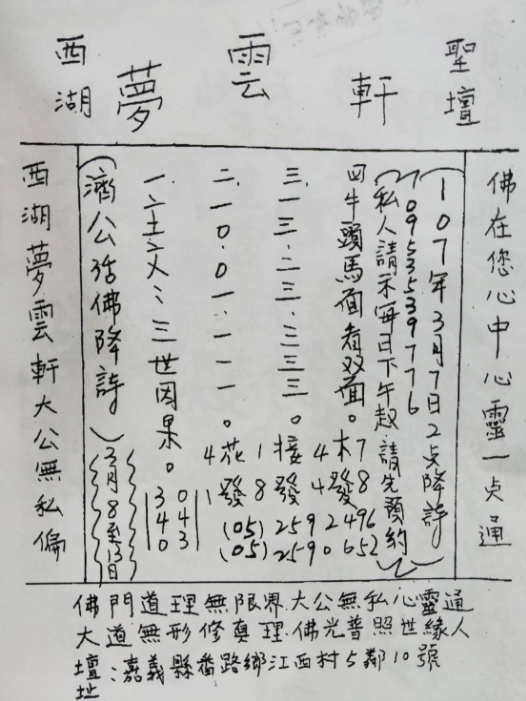 聖壇 軒 雲 夢 西湖
佛在您心中心靈一点通
(107年3月7日2点降詩)
(0953539776
私人請示每日下午起.請先預約)
四牛頭馬面者双面。木7
發8
三.一三.二三.三三三。接4
發4
二.一0.0一.一一。花1
發8
一.二土二文二.三世因果。
4
1
(05)2592496
(05)2590652
(濟公活佛降詩)
0 3
4 4
3 0
3月8至13日
西湖夢雲軒大公無私偏
佛門道理無限界.大公無私心靈通
大道無形修真理.佛光普照世緣人
壇址:嘉義縣番路鄉江西村5鄰10號